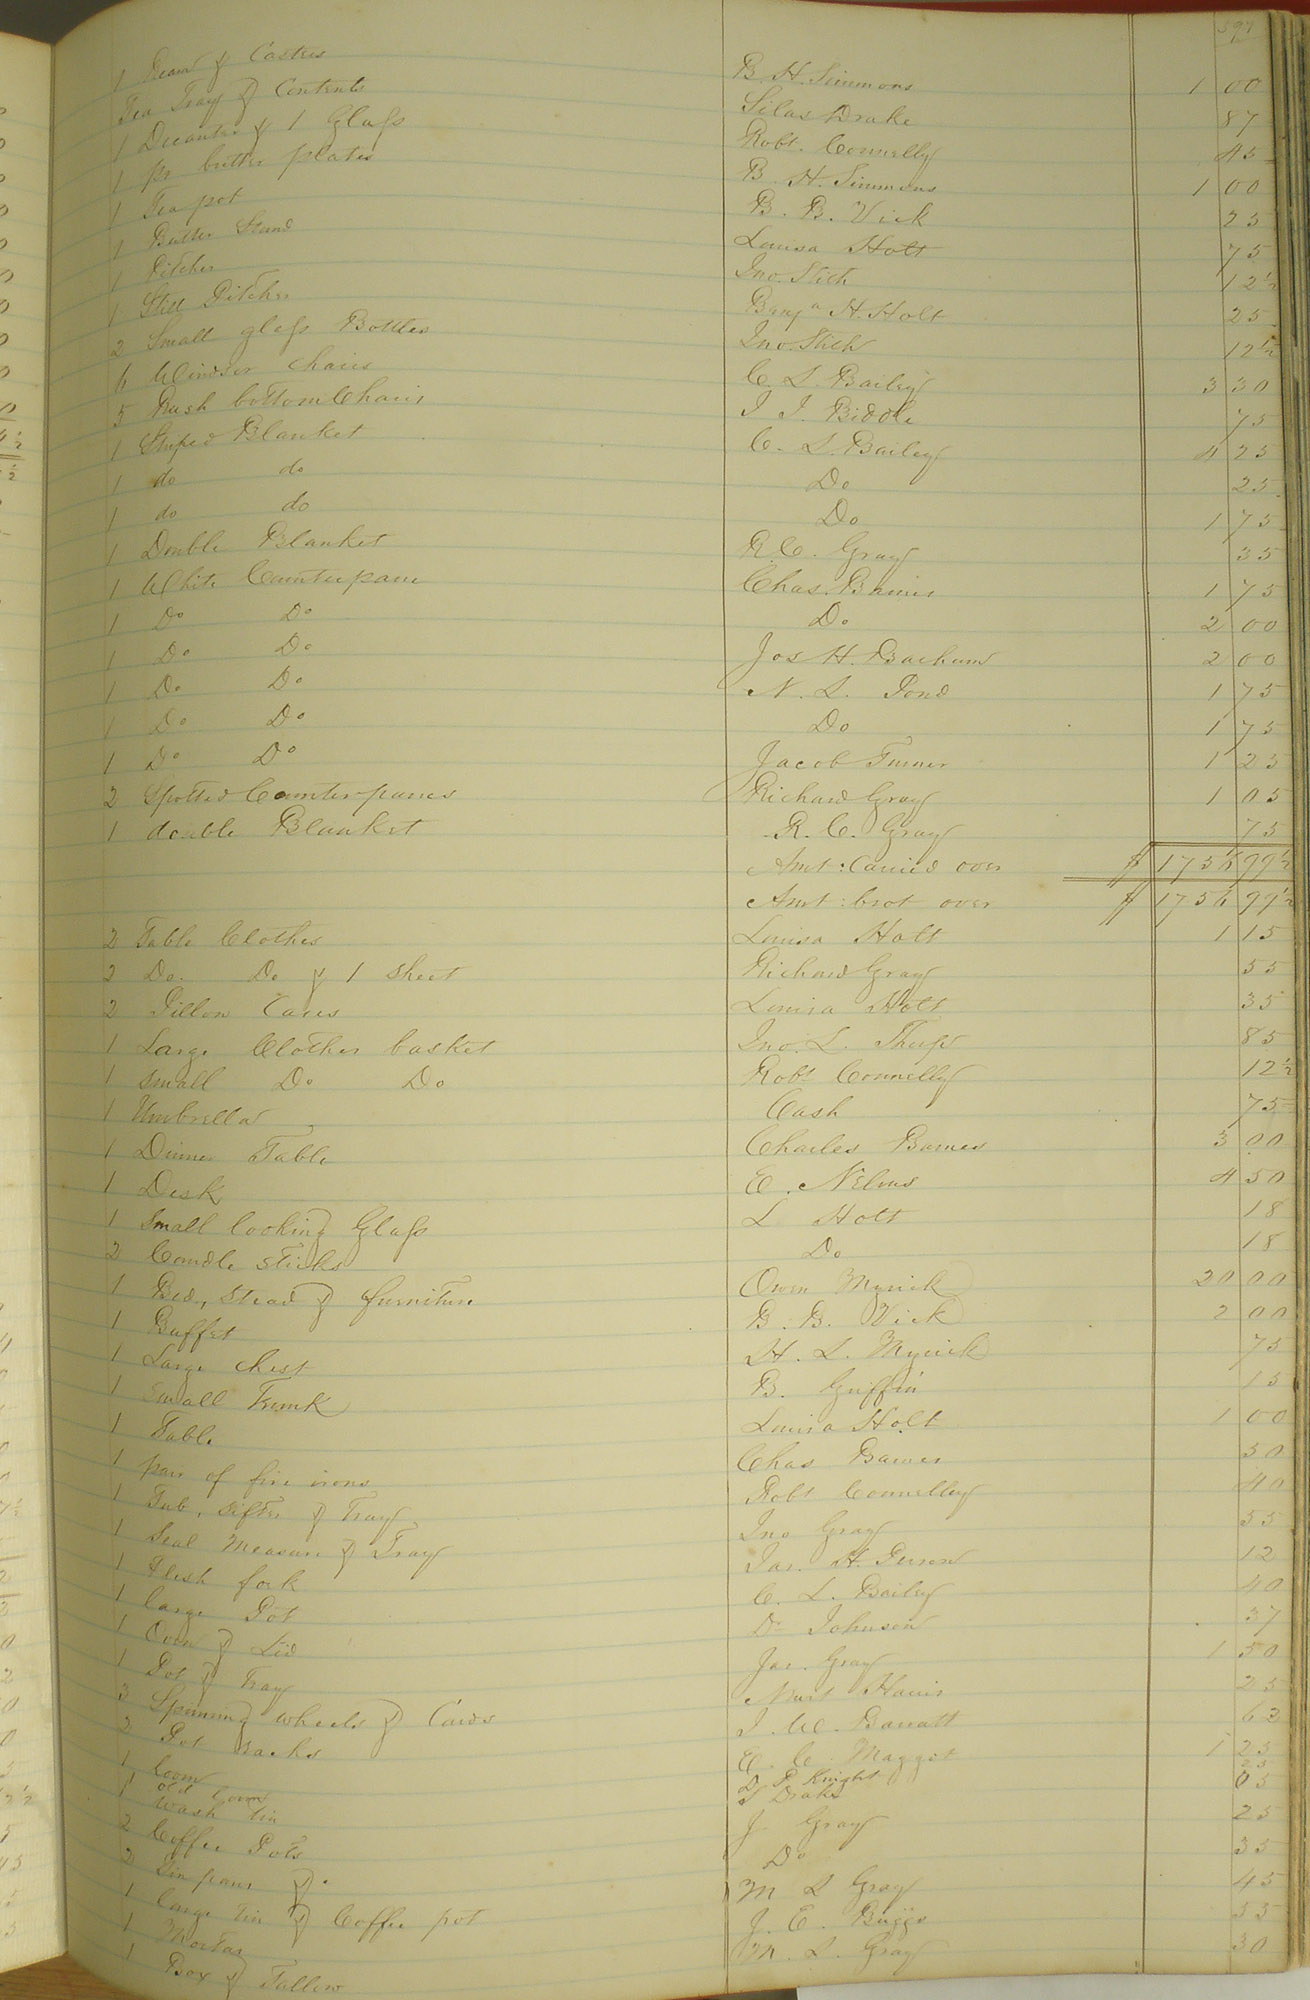 597
1 & Castus B. H. Simmons 1 00
Tea Tray & Contents Silas Drake 87
1 Decanter & 1 Glass Robt. Connelly 45
1 pr butter plates B. H. Simmons 1 00
1 Tea pot B. B. Vick 25
1 Butter Stand Louisa Holt 75
1 Pitcher Jno. Stith 12½
1 Still Pitcher Benja H. Holt 25
2 Small glass Bottles Jno. Stith 12½
6 Windsor chairs C. L. Bailey 3 30
5 Rush bottom Chairs J. J. Biddle 75
1 Striped Blanket C. L. Bailey 4 25
1 do do Do 25
1 do do Do 1 75
1 Double Blanket R. C. Gray 35
1 White Counterpane Chas. Barnes 1 75
1 Do Do Do 2 00
1 Do Do Jos H. Barham 2 00
1 Do Do N. L. Pond 1 75
1 Do Do Do 1 75
1 Do Do Jacob Turner 1 25
2 Spotted Counterpanes Richard Gray 1 05
1 double Blanket R. C. Gray 75
Amt: Carried over $ 1756 99½
Amt: brot over $ 1756 99½
2 Table Clothes Louisa Holt 1 15
2 Do. Do & 1 Sheet Richard Gray 55
2 Pillow Cases Louisa Holt 35
1 Large Clothes basket Jno. L. 85
1 small Do Do Robt Connelly 12½
1 Umbrella Cash 75
1 Dinner Table Charles Barnes 3 00
1 Desk E. Nelms 4 50
1 Small looking Glass L Holt 18
2 Candle sticks Do 18
1 Bed, Stead & furniture Owen Myrick 20 00
1 Buffet B. B. Vick 2 00
1 Large chest H. L. Myrick 75
1 Small Trunk B. Griffin 15
1 Table Louisa Holt 1 00
1 pair of fire irons Chas Barnes 50
1 Tub, Sifter & Tray Robt Connelley 40
1 Seal Measure & Tray Jno Gray 55
1 Flesh fork Jas. H. 12
1 large Pot C. L. Bailey 40
1 Oven & Lid Dr Johnson 37
1 Pot & Tray Jas. Gray 1 50
3 Spinning wheels & Cards Harris 25
2 Pot racks J. W. Barratt 62
1 Loom E. C. Maggot 1 25
1 old loom D P Knight 25
wash tin T Drake 05
2 Coffee Pots J. Gray 25
2 Tin pans &. Do 35
1 large tin & Coffee pot M L Gray 45
1 Mortar J. E. Briggs 55
1 Box & Tallow M. L. Gray 30